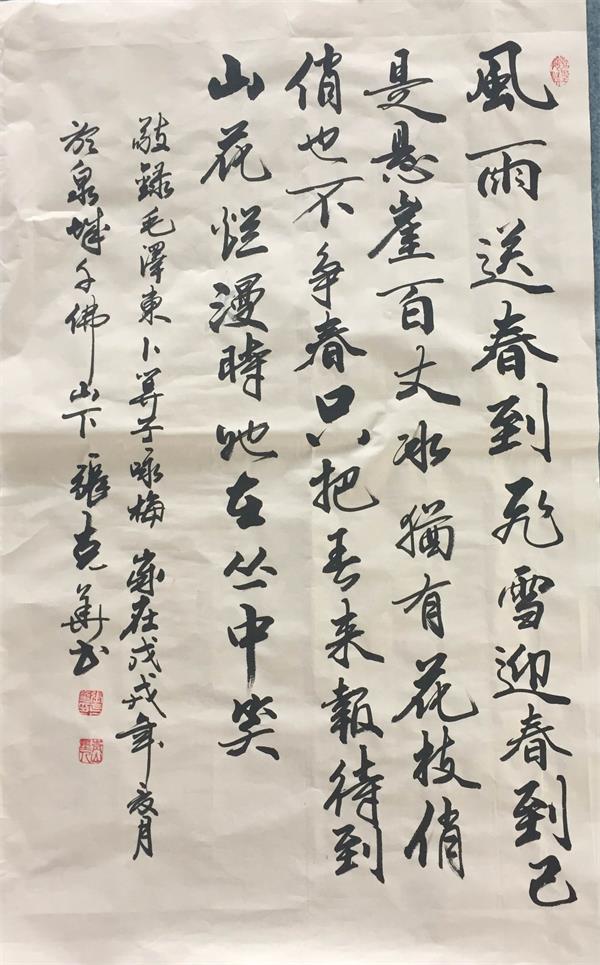 風雨送春到飛雪迎春到已
是悬崖百丈冰猶有花枝俏
俏也不争春只把春来報待到
山花烂漫時她在丛中笑
敬錄毛澤東卜算子咏梅 歲在戊戌年夏月
於泉城千佛山下 張克華书